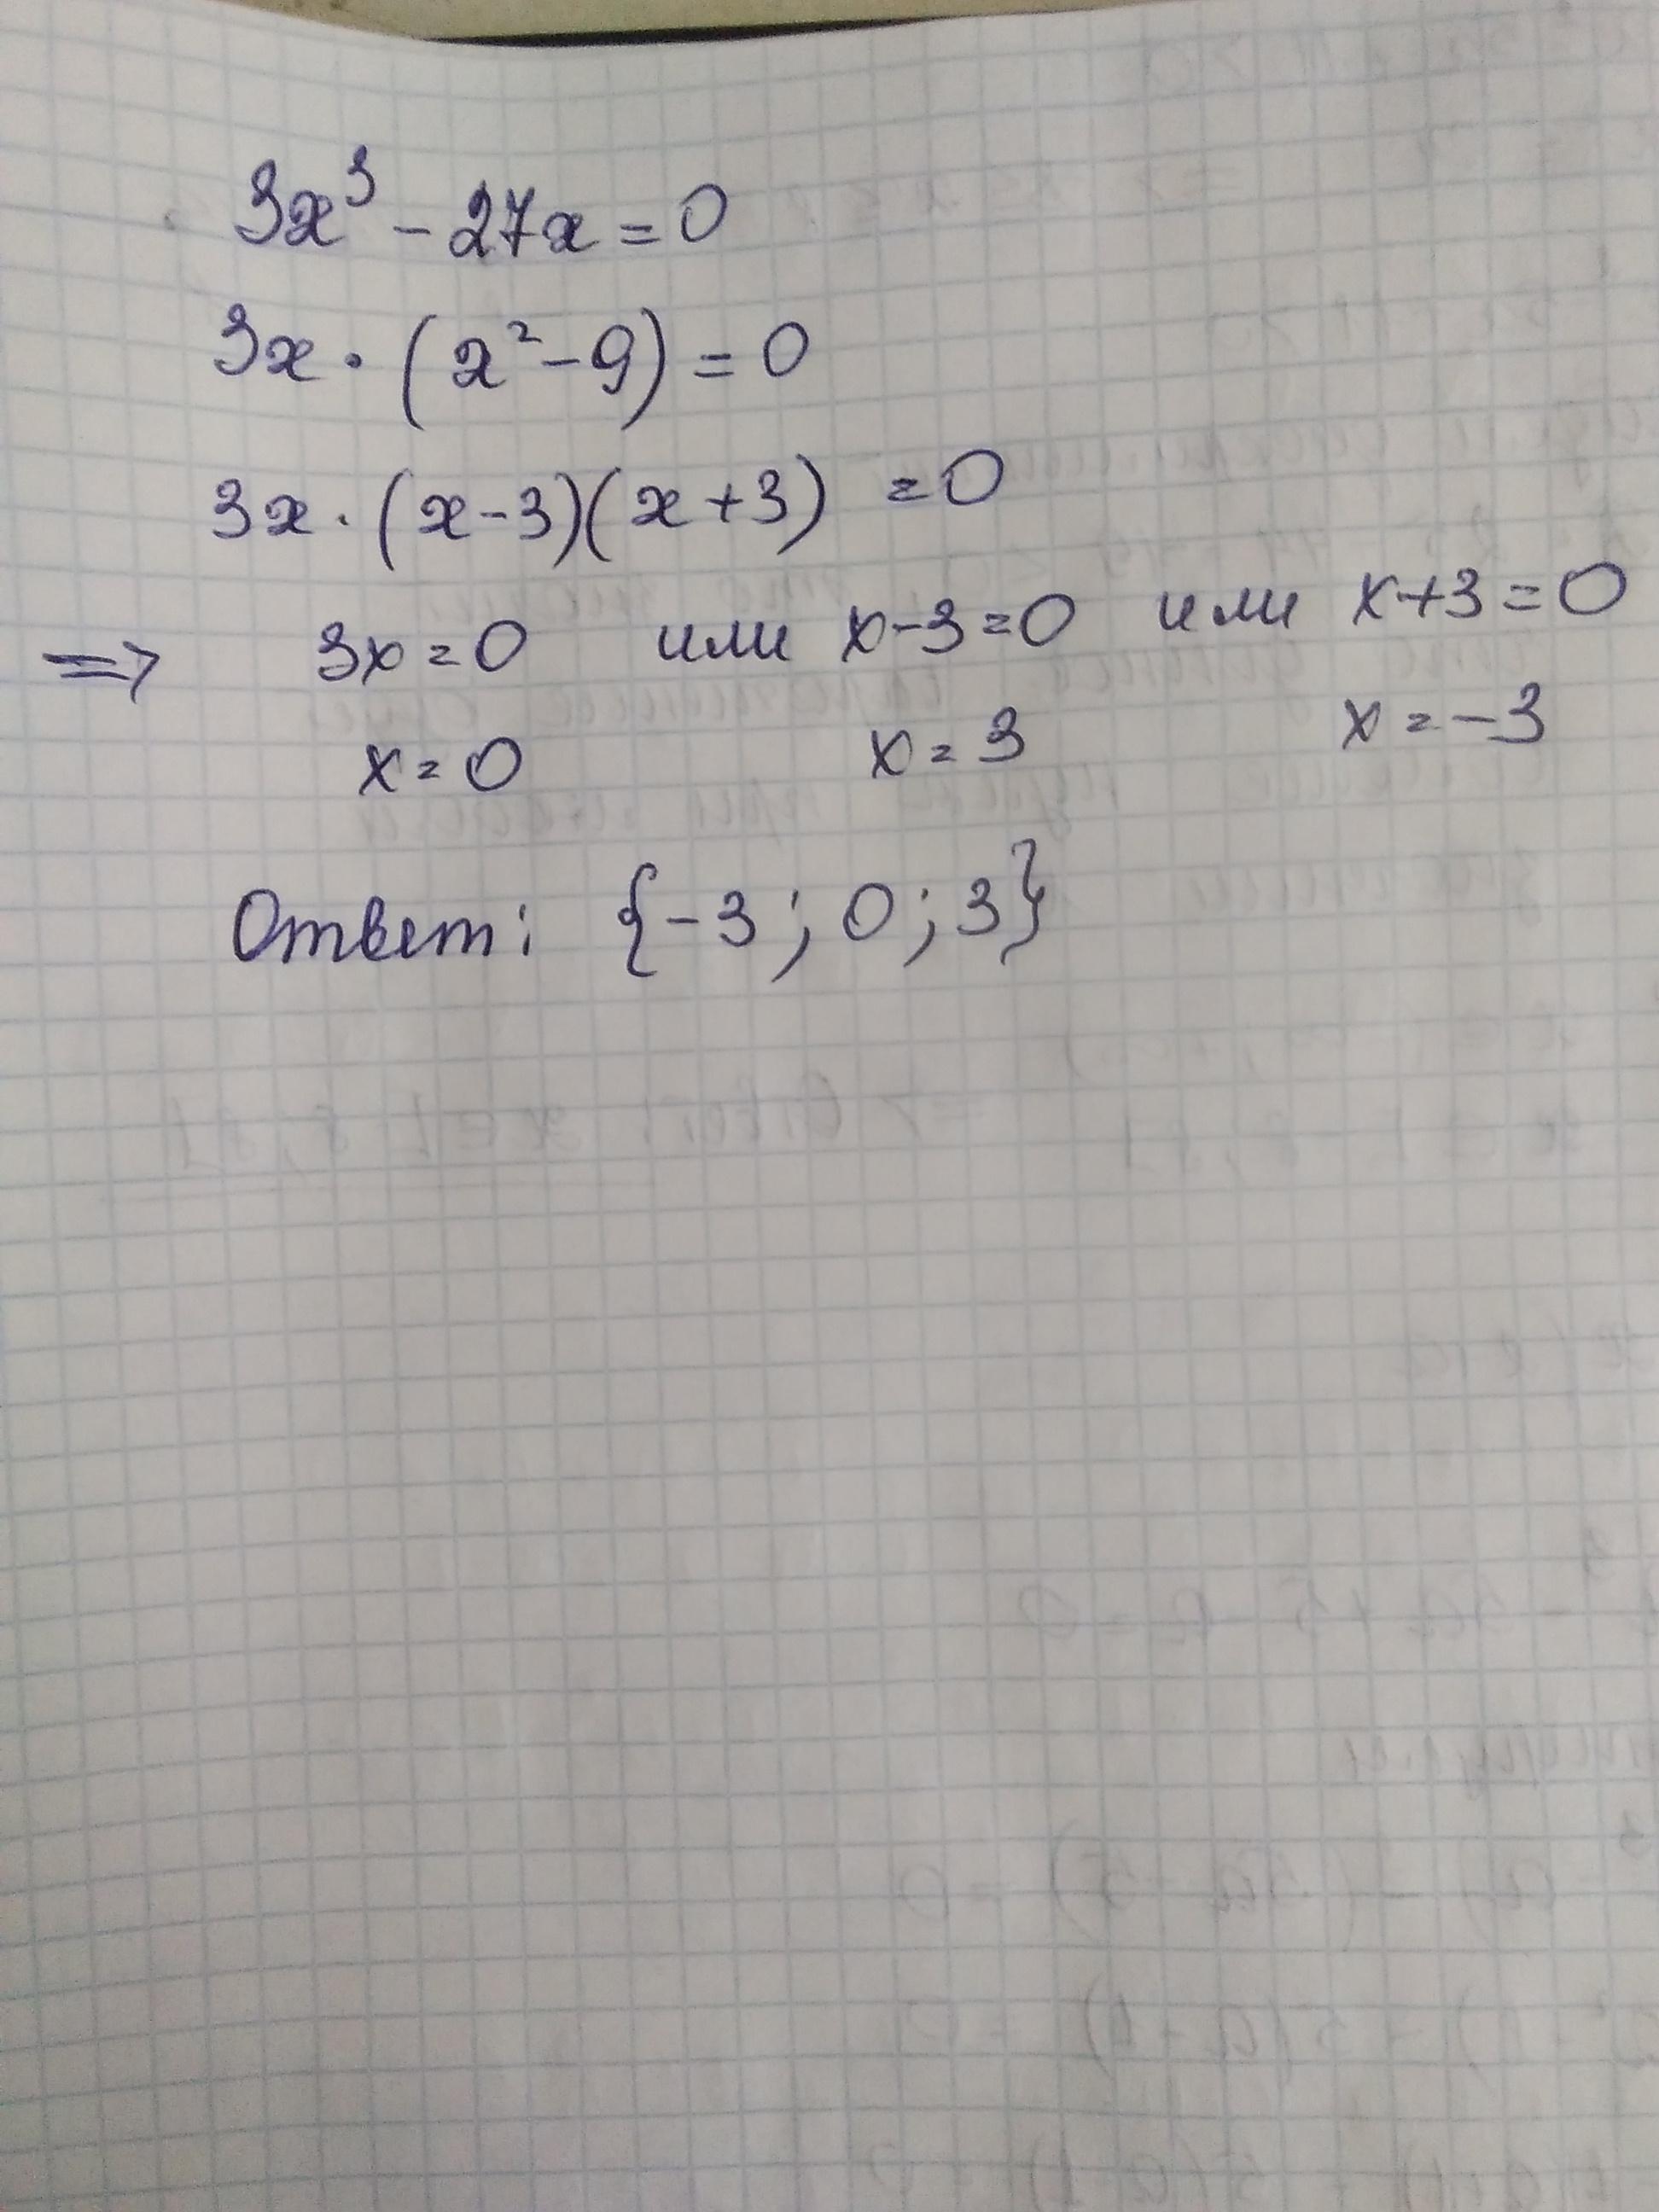 3x³ - 27x = 0
3x · (x² - 9) = 0
3x · (x - 3)(x + 3) = 0
=> 3x = 0 или x - 3 = 0 или x + 3 = 0
x = 0 x = 3 x = -3
Ответ: {-3; 0; 3}